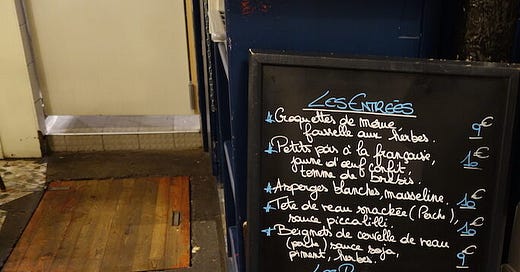 Les Entrées
Croquettes de morue,
faisselle aux herbes. 9€
Petits pois à la française,
jaune d'œuf confit,
tomme de brebis. 10€
Asperges blanches, mousseline. 10€
Tete de veau snackée (Pache),
sauce piccalilli. 10€
Beignets de cervelle de veau
(pache) sauce soja,
piment, herbes. 9€
Les